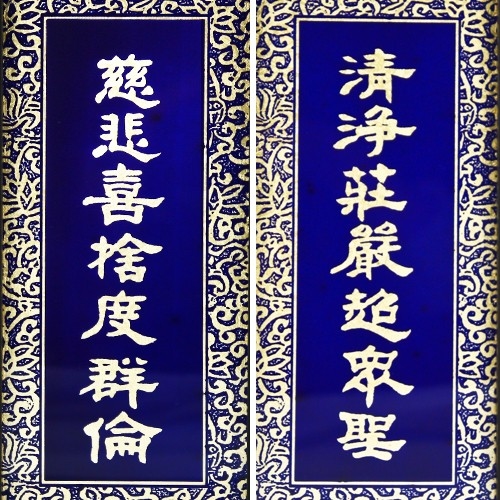 清淨莊嚴超眾聖
慈悲喜捨度群倫